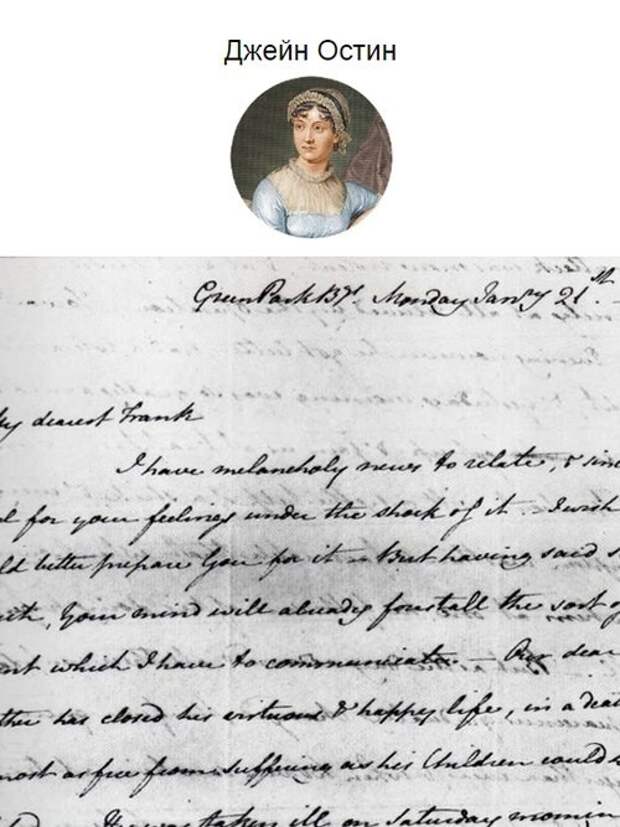 Джейн Остин
Green Park Bgs. Monday Janry 21st.
dearest Frank
I have melancholy news to relate, & sinc
l for your feelings under the shock of it. – I wish
ld better prepare You for it – But having said s
Your mind will already forestall the sort of
nt which I have to communicate. – Our dear
ther has closed his virtuous & happy life, in a deat
most as free from suffering as his Children could
He was taken ill on Saturday mornin